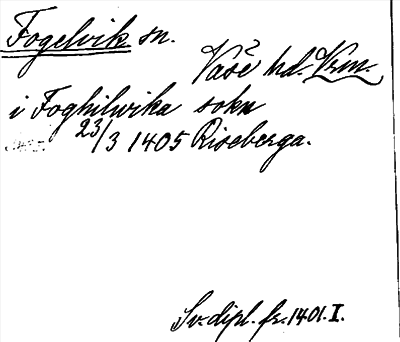 Fogelvik sn.
Väse hd. Vrm.
i Foghilwika sokn
23/3 1405 Riseberga.
Sv. dipl. fr. 1401. I.